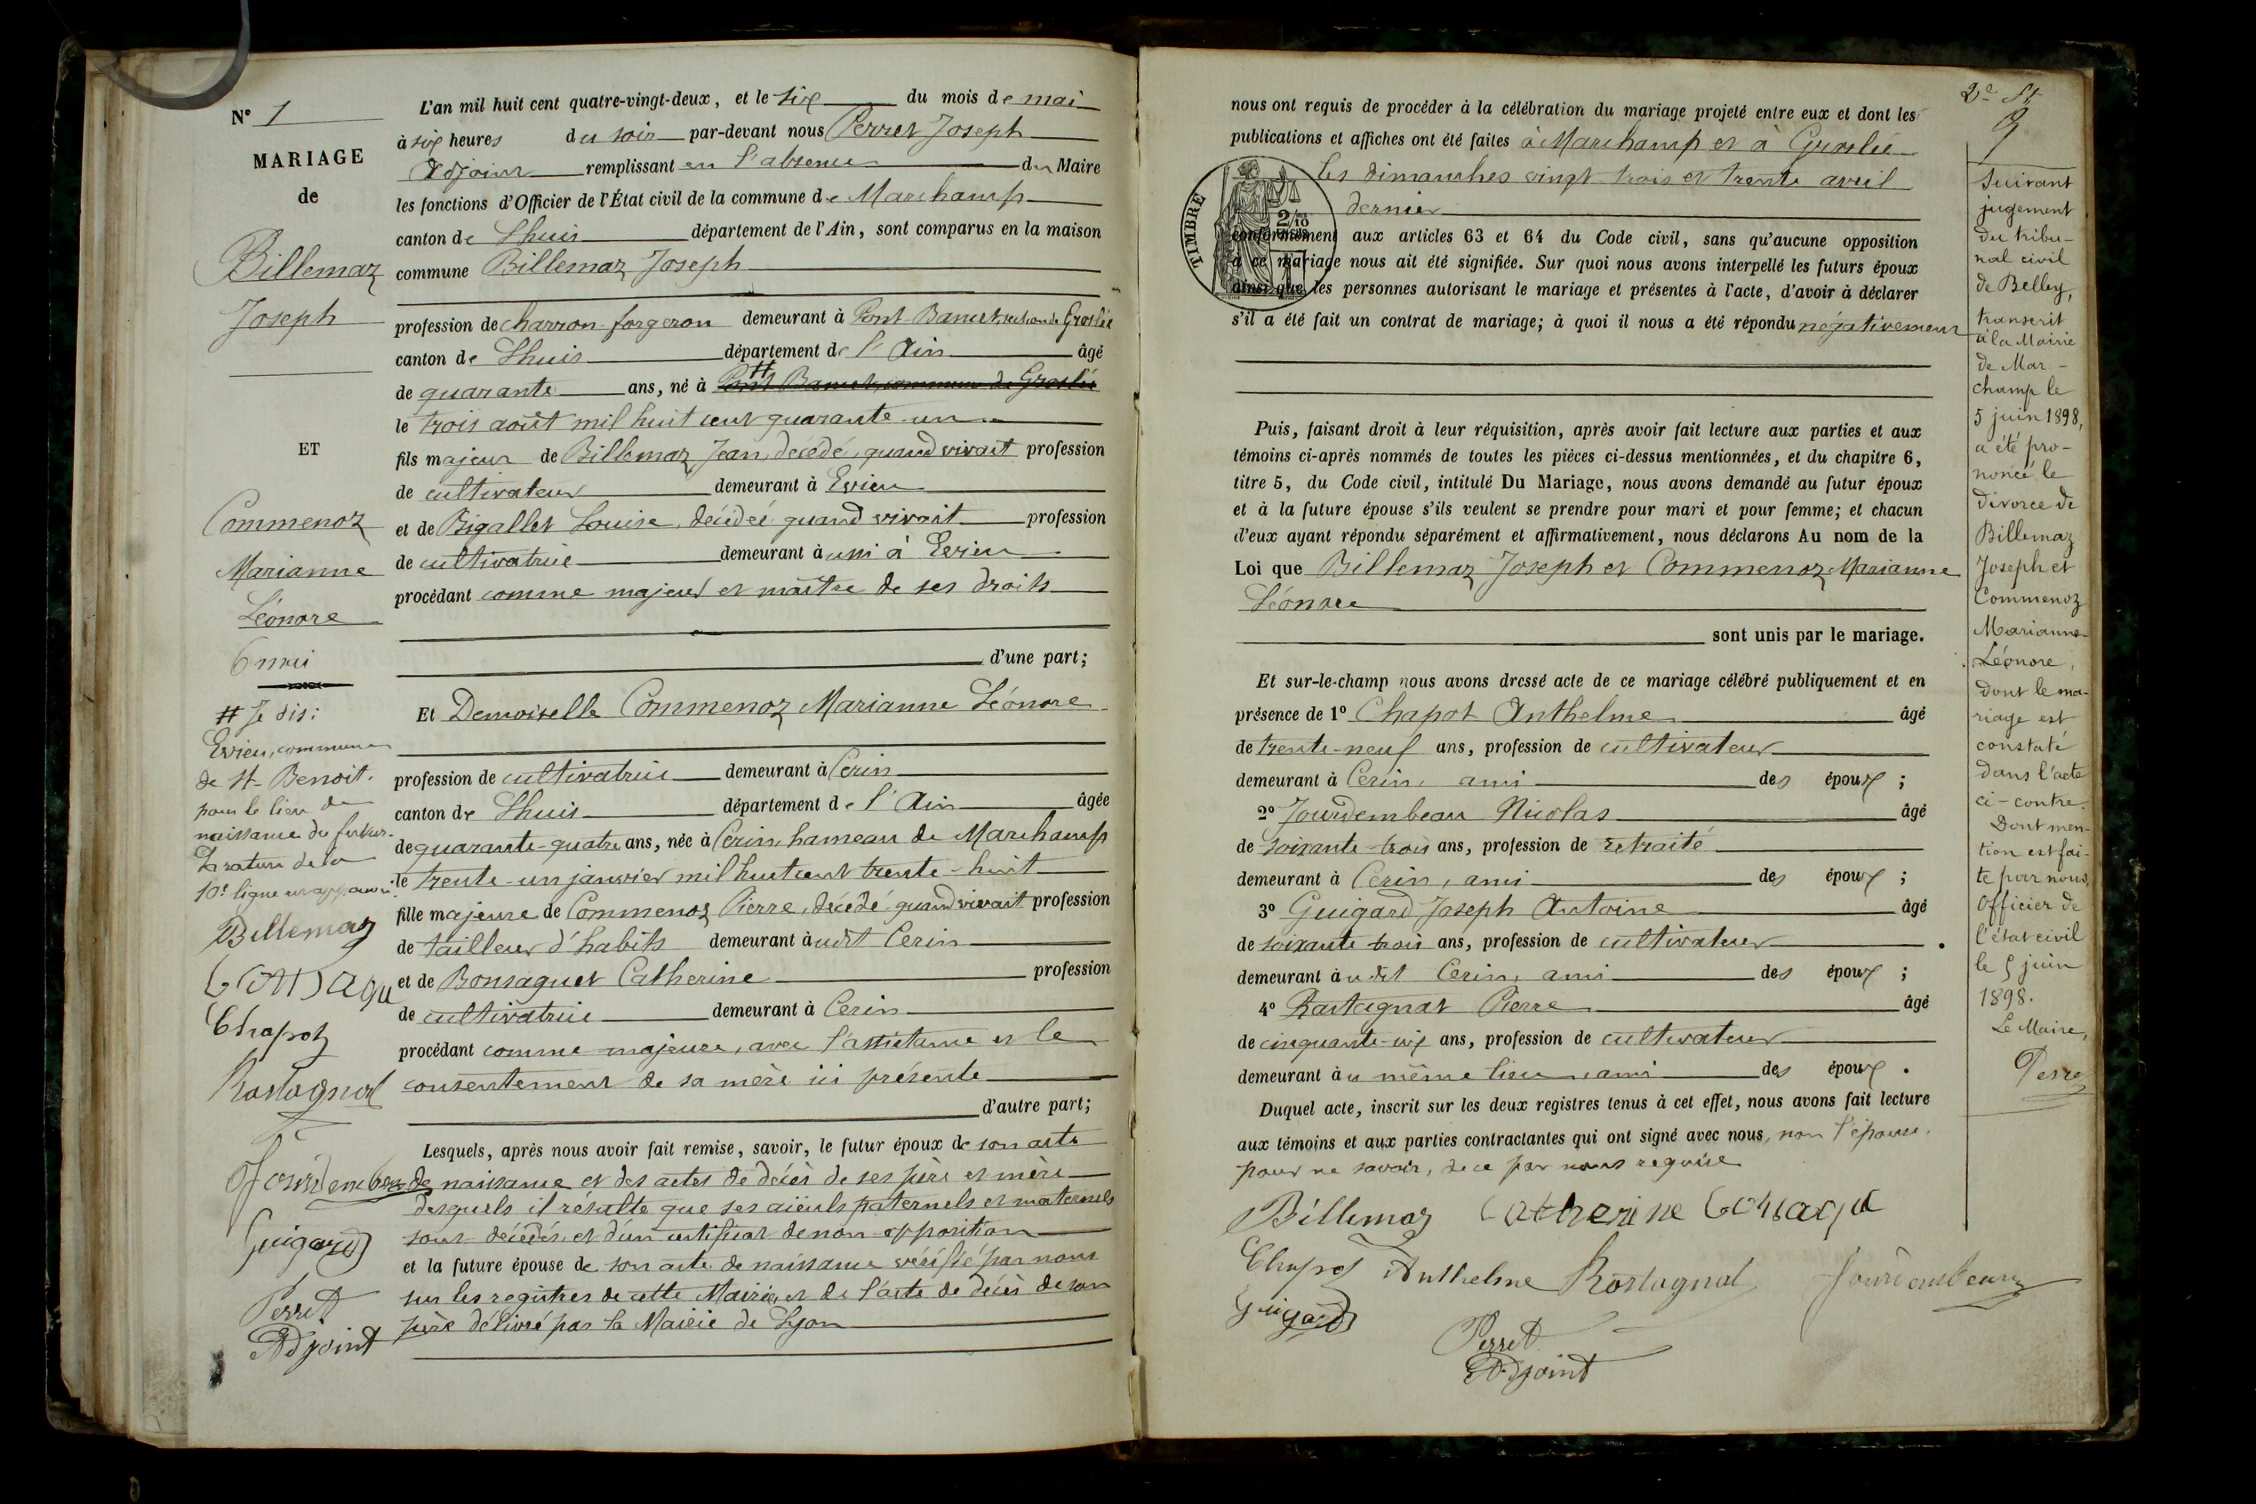 N° 1
MARIAGE
de
Billemaz
Joseph
ET
Commenoz
Marianne
Léonore
6 mai
# Je dis:
Evieu, commune
de St Benoit.
pour le lieu de
naissance du futur.
La rature de la
10e ligne est approuvée
Billemaz
Chapot
Rostagnat
Jourdembeau
Guigard
Perret
Adjoint
L'an mil huit cent quatre-vingt-deux, et le six du mois de mai
à six heures du soir par-devant nous Perret Joseph
Adjoint remplissant en l'absence du Maire
les fonctions d'Officier de l'État civil de la commune de Marchamp
canton de Lhuis département de l'Ain, sont comparus en la maison
commune Billemaz Joseph
profession de charron forgeron demeurant à Pont Bancet, section de Groslée
canton de Lhuis département de l'Ain âgé
de quarante ans, né à # Pont Bancet, commune de Groslée
le trois août mil huit cent quarante-un
fils majeur de Billemaz Jean, décédé, quand vivait profession
de cultivateur demeurant à Evieu
et de Bigallet Louise, décédée quand vivait profession
de cultivatrice demeurant à ussi à Evieu
procédant comme majeur et maître de ses droits
d'une part;
Et Demoiselle Commenoz Marianne Léonore
profession de cultivatrice demeurant à Cerin
canton de Lhuis département de l'Ain âgée
de quarante-quatre ans, née à Cerin, hameau de Marchamp
le trente-un janvier mil huit cent trente-huit
fille majeure de Commenoz Pierre, décédé quand vivait profession
de tailleur d'habits demeurant à udit Cerin
et de Bonsaguet Catherine profession
de cultivatrice demeurant à Cerin
procédant comme majeure, avec l'assistance et le
consentement de sa mère ici présente
d'autre part;
Lesquels, après nous avoir fait remise, savoir, le futur époux de son acte
de naissance et des actes de décès de ses père et mère
desquels il résulte que ses aïeuls paternels et maternels
sont décédés, et d'un certificat de non opposition
et la future épouse de son acte de naissance vérifié par nous
sur les registres de cette Mairie, et de l'acte de décès de son
père délivré par la Mairie de Lyon
nous ont requis de procéder à la célébration du mariage projeté entre eux et dont les
publications et affiches ont été faites à Marchamp et à Groslée
les dimanches vingt-trois et trente avril
dernier
TIMBRE
2/10
conformément aux articles 63 et 64 du Code civil, sans qu'aucune opposition
à ce mariage nous ait été signifiée. Sur quoi nous avons interpellé les futurs époux
ainsi que les personnes autorisant le mariage et présentes à l'acte, d'avoir à déclarer
s'il a été fait un contrat de mariage; à quoi il nous a été répondu négativement
Puis, faisant droit à leur réquisition, après avoir fait lecture aux parties et aux
témoins ci-après nommés de toutes les pièces ci-dessus mentionnées, et du chapitre 6,
titre 5, du Code civil, intitulé Du Mariage, nous avons demandé au futur époux
et à la future épouse s'ils veulent se prendre pour mari et pour femme; et chacun
d'eux ayant répondu séparément et affirmativement, nous déclarons Au nom de la
Loi que Billemaz Joseph et Commenoz Marianne
Léonore
sont unis par le mariage.
Et sur-le-champ nous avons dressé acte de ce mariage célébré publiquement et en
présence de 1° Chapot Anthelme âgé
de trente-neuf ans, profession de cultivateur
demeurant à Cerin, ami des époux ;
2° Jourdembeau Nicolas âgé
de soixante-trois ans, profession de retraité
demeurant à Cerin, ami des époux ;
3° Guigard Joseph Antoine âgé
de soixante trois ans, profession de cultivateur
demeurant à udit Cerin, ami des époux ;
4° Rostagnat Pierre âgé
de cinquante-six ans, profession de cultivateur
demeurant à u même lieu, ami des époux .
Duquel acte, inscrit sur les deux registres tenus à cet effet, nous avons fait lecture
aux témoins et aux parties contractantes qui ont signé avec nous, non l'épouse.
pour ne savoir, de ce par nous requise
Billemaz Catherine
Chapot Anthelme Rostagnat Jourdembeau
Guigard
Perret
Adjoint
9
Suivant
jugement
du tribu-
nal civil
de Belley,
transcrit
à la Mairie
de Mar-
champ le
5 juin 1898,
a été pro-
noncé le
divorce de
Billemaz
Joseph et
Commenoz
Marianne
Léonore,
dont le ma-
riage est
constaté
dans l'acte
ci-contre.
Dont men-
tion est fai-
te par nous,
Officier de
l'état civil
le 5 juin
1898.
Le Maire,
Perret